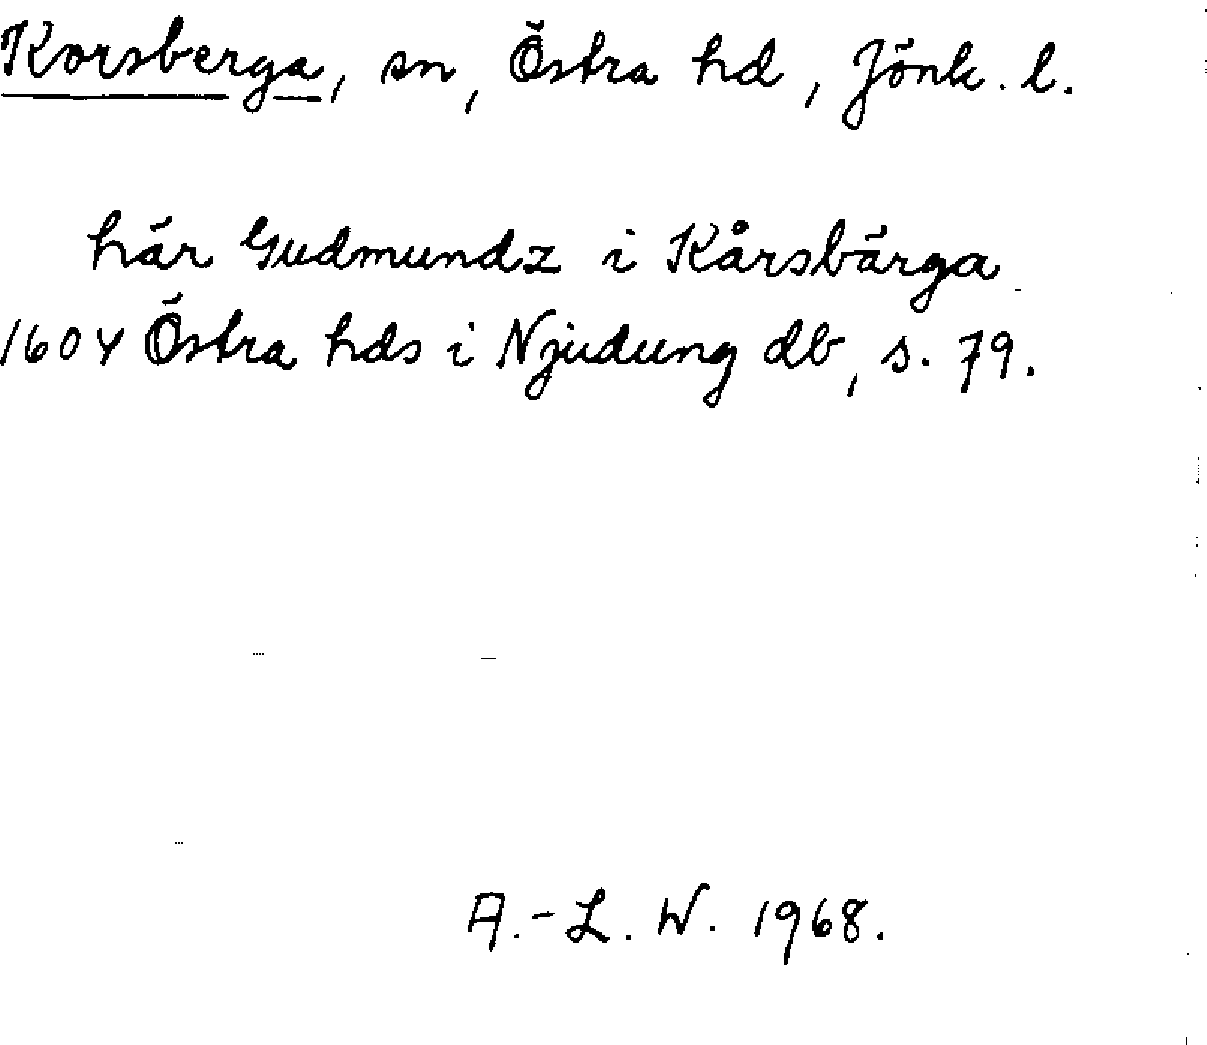 Korsberga, sn, Östra hd, Jönk. l.
här Gudmundz i Kårsbärga
1604 Östra hds i Njudung db, s. 79.
A.-L. W. 1968.